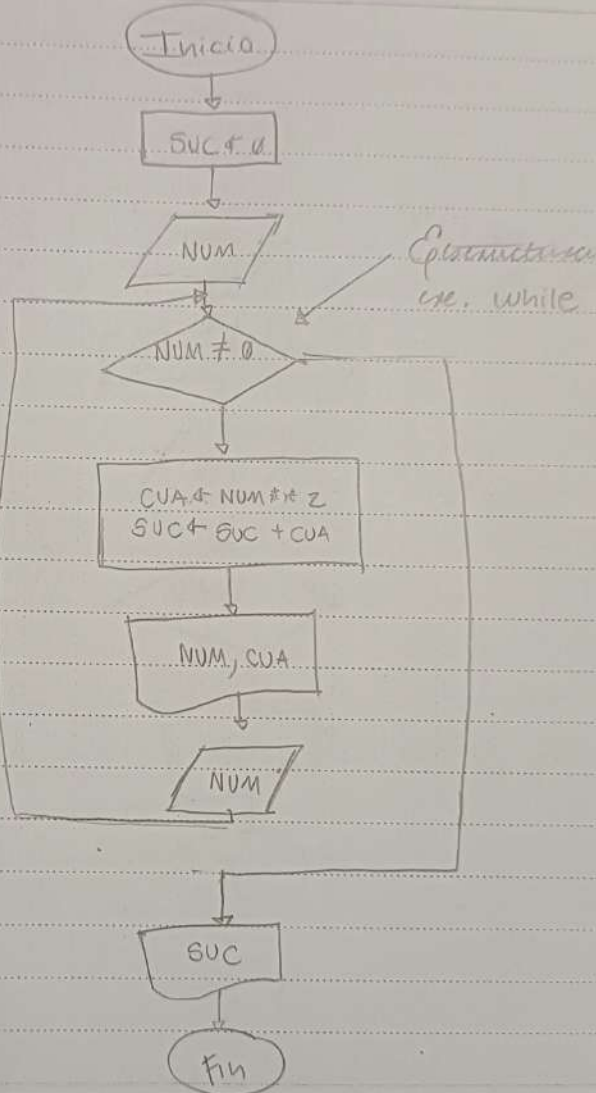 Inicio
SUC ← 0
NUM
while
NUM ≠ 0
CUA ← NUM ** 2
SUC ← SUC + CUA
NUM, CUA
NUM
SUC
Fin